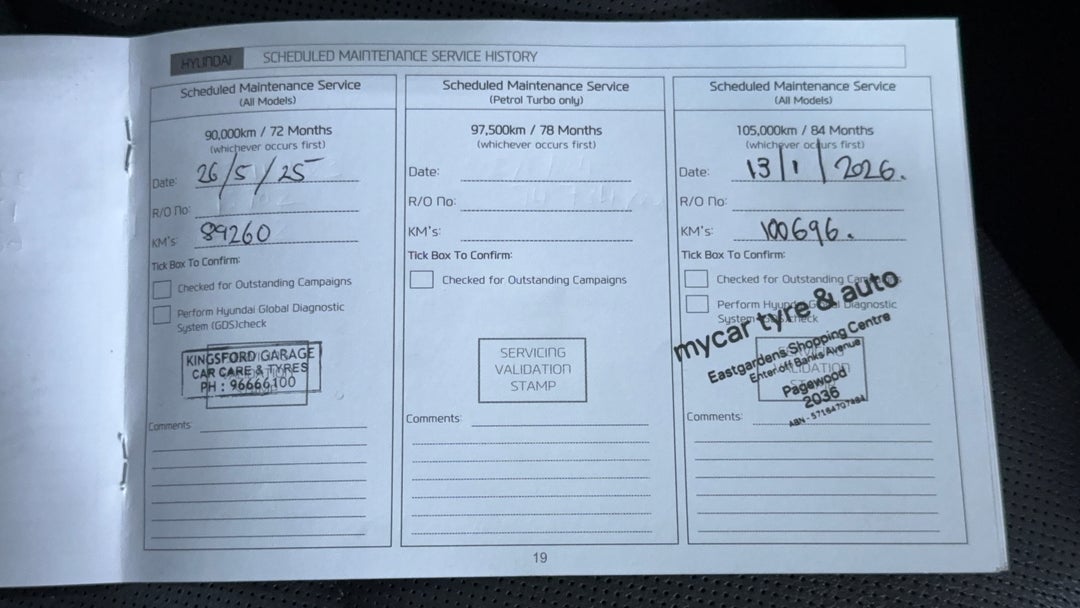 HYUNDAI SCHEDULED MAINTENANCE SERVICE HISTORY
Scheduled Maintenance Service
(All Models)
90,000km / 72 Months
(whichever occurs first)
Date: 26/5/25
R/O No:
KM's: 89260
Tick Box To Confirm:
Checked for Outstanding Campaigns
Perform Hyundai Global Diagnostic
System (GDS)check
KINGSFORD GARAGE
CAR CARE & TYRES
PH : 96666100
Comments:
Scheduled Maintenance Service
(Petrol Turbo only)
97,500km / 78 Months
(whichever occurs first)
Date:
R/O No:
KM's:
Tick Box To Confirm:
Checked for Outstanding Campaigns
SERVICING
VALIDATION
STAMP
Comments:
Scheduled Maintenance Service
(All Models)
105,000km / 84 Months
(whichever occurs first)
Date: 13/1/2026.
R/O No:
KM's: 100696.
Tick Box To Confirm:
Checked for Outstanding Campaigns
Perform Hyundai Global Diagnostic
System (GDS)check
mycar tyre & auto
Eastgardens Shopping Centre
Enter off Banks Avenue
Pagewood
2036
Comments:
19